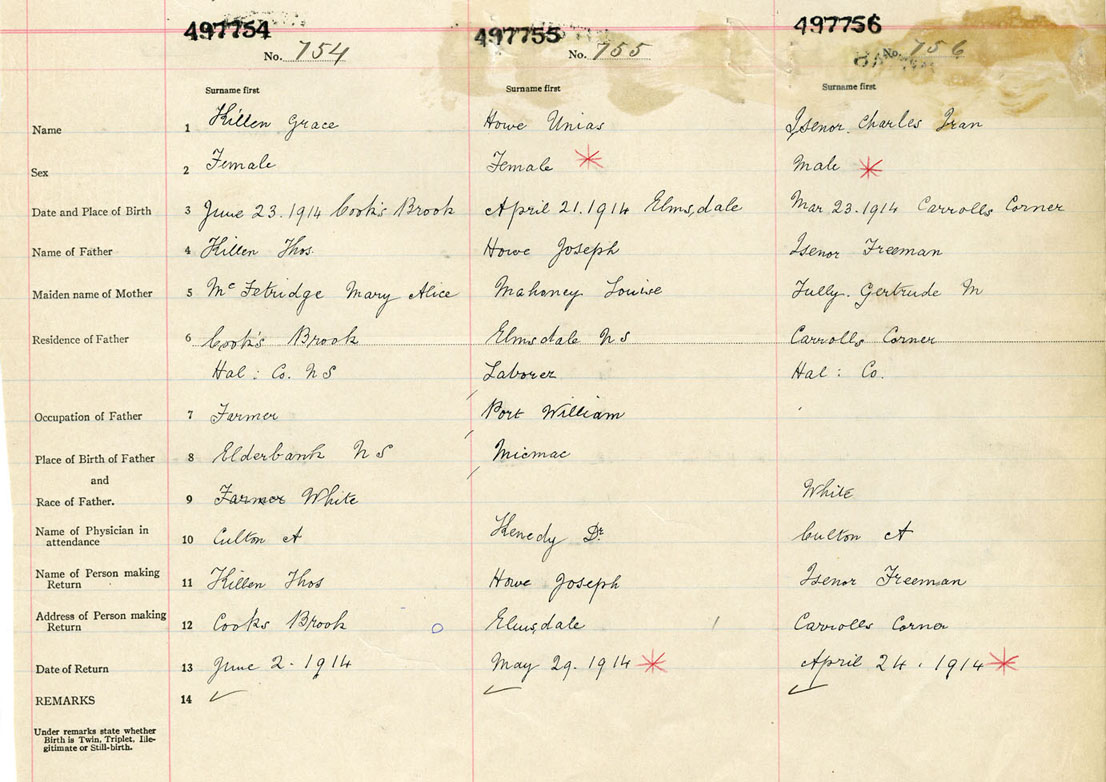 497754 497755 497756
No. 754 No. 755 No. 756
Surname first Surname first Surname first
Name 1 Killen Grace Howe Unias Isenor Charles Ivan
Sex 2 Female Female Male
Date and Place of Birth 3 June 23. 1914 Cook's Brook April 21. 1914 Elmsdale Mar 23. 1914 Carrolls Corner
Name of Father 4 Killen Thos. Howe Joseph Isenor Freeman
Maiden name of Mother 5 Mc Fetridge Mary Alice Mahoney Louise Tully. Gertrude M
Residence of Father 6 Cook's Brook Elmsdale N S Carrolls Corner
Hal: Co. N S Laborer Hal: Co.
Occupation of Father 7 Farmer Port William
Place of Birth of Father 8 Elderbank N S Micmac
and
Race of Father. 9 Farmer White White
Name of Physician in
attendance 10 Culton A Kenedy Dr. Culton A
Name of Person making
Return 11 Killen Thos Howe Joseph Isenor Freeman
Address of Person making
Return 12 Cooks Brook Elmsdale Carrolls Corner
Date of Return 13 June 2. 1914 May 29. 1914 April 24. 1914
REMARKS 14
Under remarks state whether
Birth is Twin, Triplet, Ille-
gitimate or Still-birth.